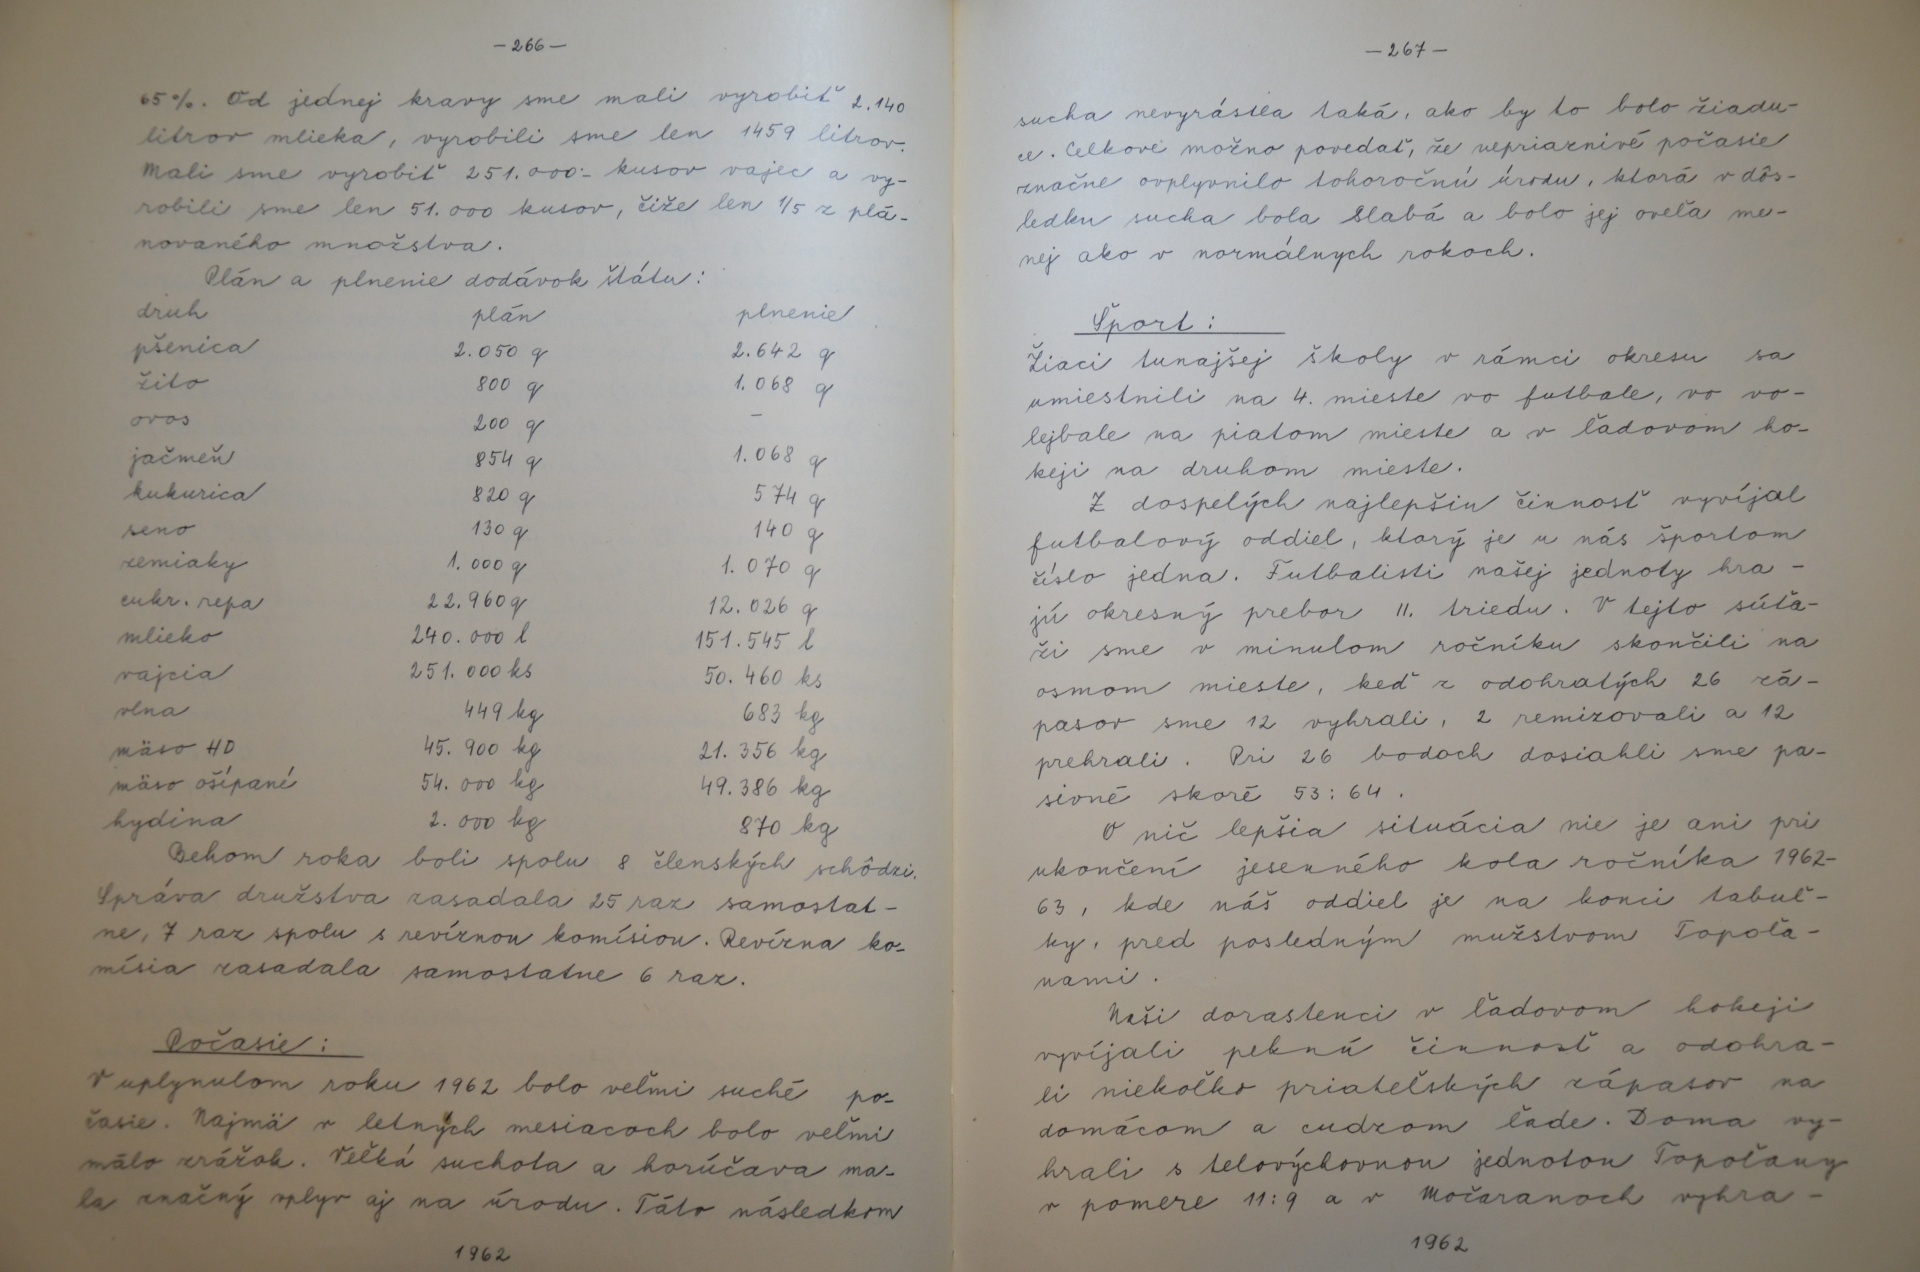 - 266 -
65%. Od jednej kravy sme mali vyrobiť 2.140
litrov mlieka, vyrobili sme len 1459 litrov.
Mali sme vyrobiť 251.000.- kusov vajec a vy-
robili sme len 51.000 kusov, čiže len 1/5 z plá-
novaného množstva.
Plán a plnenie dodávok štátu:
druh plán plnenie
pšenica 2.050 q 2.642 q
žito 800 q 1.068 q
ovos 200 q -
jačmeň 854 q 1.068 q
kukurica 820 q 574 q
seno 130 q 140 q
zemiaky 1.000 q 1.070 q
cukr. repa 22.960 q 12.026 q
mlieko 240.000 l 151.545 l
vajcia 251.000 ks 50.460 ks
vlna 449 kg 683 kg
mäso HD 45.900 kg 21.356 kg
mäso ošípané 54.000 kg 49.386 kg
hydina 2.000 kg 870 kg
Behom roka boli spolu 8 členských schôdzi.
Správa družstva zasadala 25 raz samostat-
ne, 7 raz spolu s revíznou komísiou. Revízna ko-
mísia zasadala samostatne 6 raz.
Počasie:
V uplynulom roku 1962 bolo veľmi suché po-
časie. Najmä v letných mesiacoch bolo veľmi
málo zrážok. Veľká suchota a horúčava ma-
la značný vplyv aj na úrodu. Táto následkom
1962
- 267 -
sucha nevyrástla taká, ako by to bolo žiadu-
ce. Celkove možno povedať, že nepriaznivé počasie
značne ovplyvnilo tohoročnú úrodu, ktorá v dôs-
ledku sucha bola slabá a bolo jej oveľa me-
nej ako v normálnych rokoch.
Šport:
Žiaci tunajšej školy v rámci okresu sa
umiestnili na 4. mieste vo futbale, vo vo-
lejbale na piatom mieste a v ľadovom ho-
keji na druhom mieste.
Z dospelých najlepšiu činnosť vyvíjal
futbalový oddiel, ktorý je u nás športom
číslo jedna. Futbalisti našej jednoty hra-
jú okresný prebor II. triedu. V tejto súťa-
ži sme v minulom ročníku skončili na
osmom mieste, keď z odohratých 26 zá-
pasov sme 12 vyhrali, 2 remizovali a 12
prehrali. Pri 26 bodoch dosiahli sme pa-
sívne skoré 53:64.
O nič lepšia situácia nie je ani pri
ukončení jesenného kola ročníka 1962-
63, kde náš oddiel je na konci tabuľ-
ky, pred posledným mužstvom Topoľa-
nami.
Naši dorastenci v ľadovom hokeji
vyvíjali peknú činnosť a odohra-
li niekoľko priateľských zápasov na
domácom a cudzom ľade. Doma vy-
hrali s telovýchovnou jednotou Topoľany
v pomere 11:9 a v Močaranoch vyhra-
1962